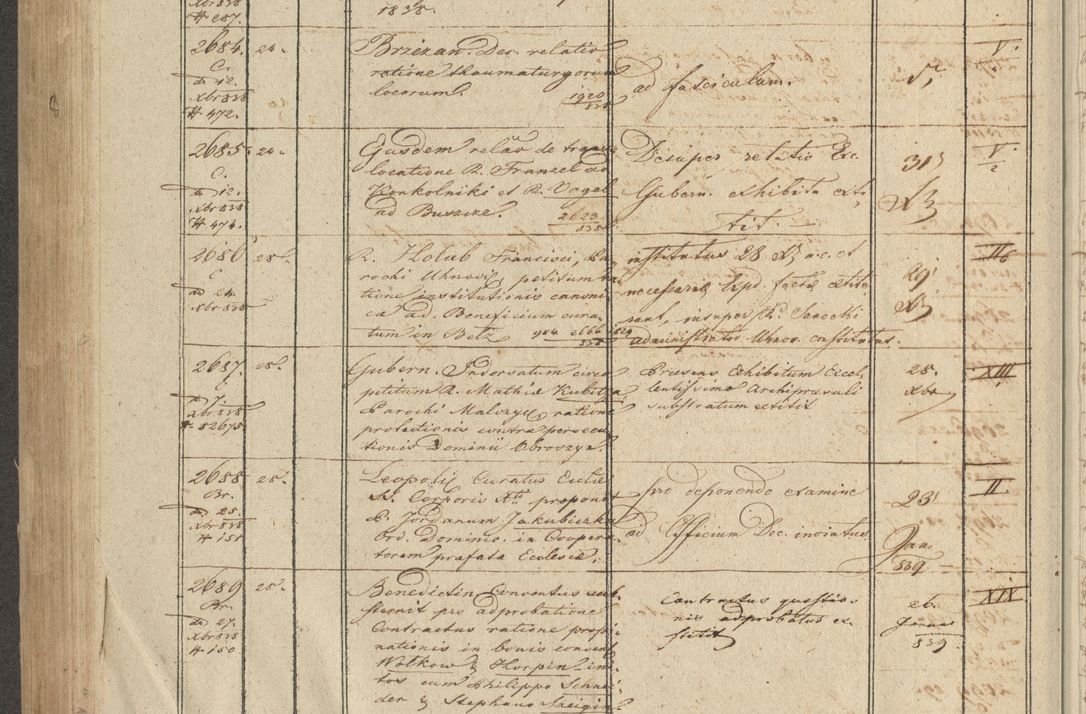 Xbr 838
# 287.
1838.
2684.
C.
dd 12.
Xbr 838
# 472.
24.
Brzezan. Dec. relatio
ratione thaumaturgorum
locorum.
1920/838
ad fasciculum.
V.
2685.
C.
dd 12.
Xbr 838
# 474.
24.
Ejusdem relão de trans
locatione R. Franzel ad
Konkolniki et R. Vogel
ad Buszcze.
2623/838
Desuper relatio Exc.
Gubern. exhibita exti
tit.
31
V/2
2686
C
dd 24.
Xbr 838
28.
R. Holub Francisci, Pa
rochi Uhnov. petitum ra
tione institutionis canoni
ca ad Beneficium cura
tum in Betz
984 2666/838 1829
institutus 28 a.c. et
necessariæ exped. factæ extite
runt, insuper
administrator Uhnov. constitutus.
29
III
2687.
C.
dd 7.
Xbr 838
# 82675
28.
Gubern. Indorsatum circa
petitum R. Mathiæ Kubitza,
Parochi Malczyc, ratione
protectionis contra persecu
tionis Dominii Obroszyn.
Præsens Exhibitum Excel
lentissimo Archipræsuli
substratum extitit
28.
Xbr
XIII
2688
Br.
dd 25.
Xbr 838
# 151
28.
Leopoliy Curatus Eccliæ
SS. Corporis Xti proponit
P. Jordanum Jakubiczka
Ord. Dominic. in Coopera
torem præfatæ Ecclesiæ.
pro deponendo examine
ad Officium Dec. inviatus
23
Jan.
839
II
2689
Br.
dd 27.
Xbr 838
# 150
28.
Benedictin. Conventus sub
sternit pro adprobatione
Contractus ratione propi
nationis in bonis convent
Wolkow & Horpin ini
tos cum Philippo Schnei
der & Stephano Szeigin
Contractus quæstio
nis adprobatus ex
titit
26.
Janu
839.
XIV